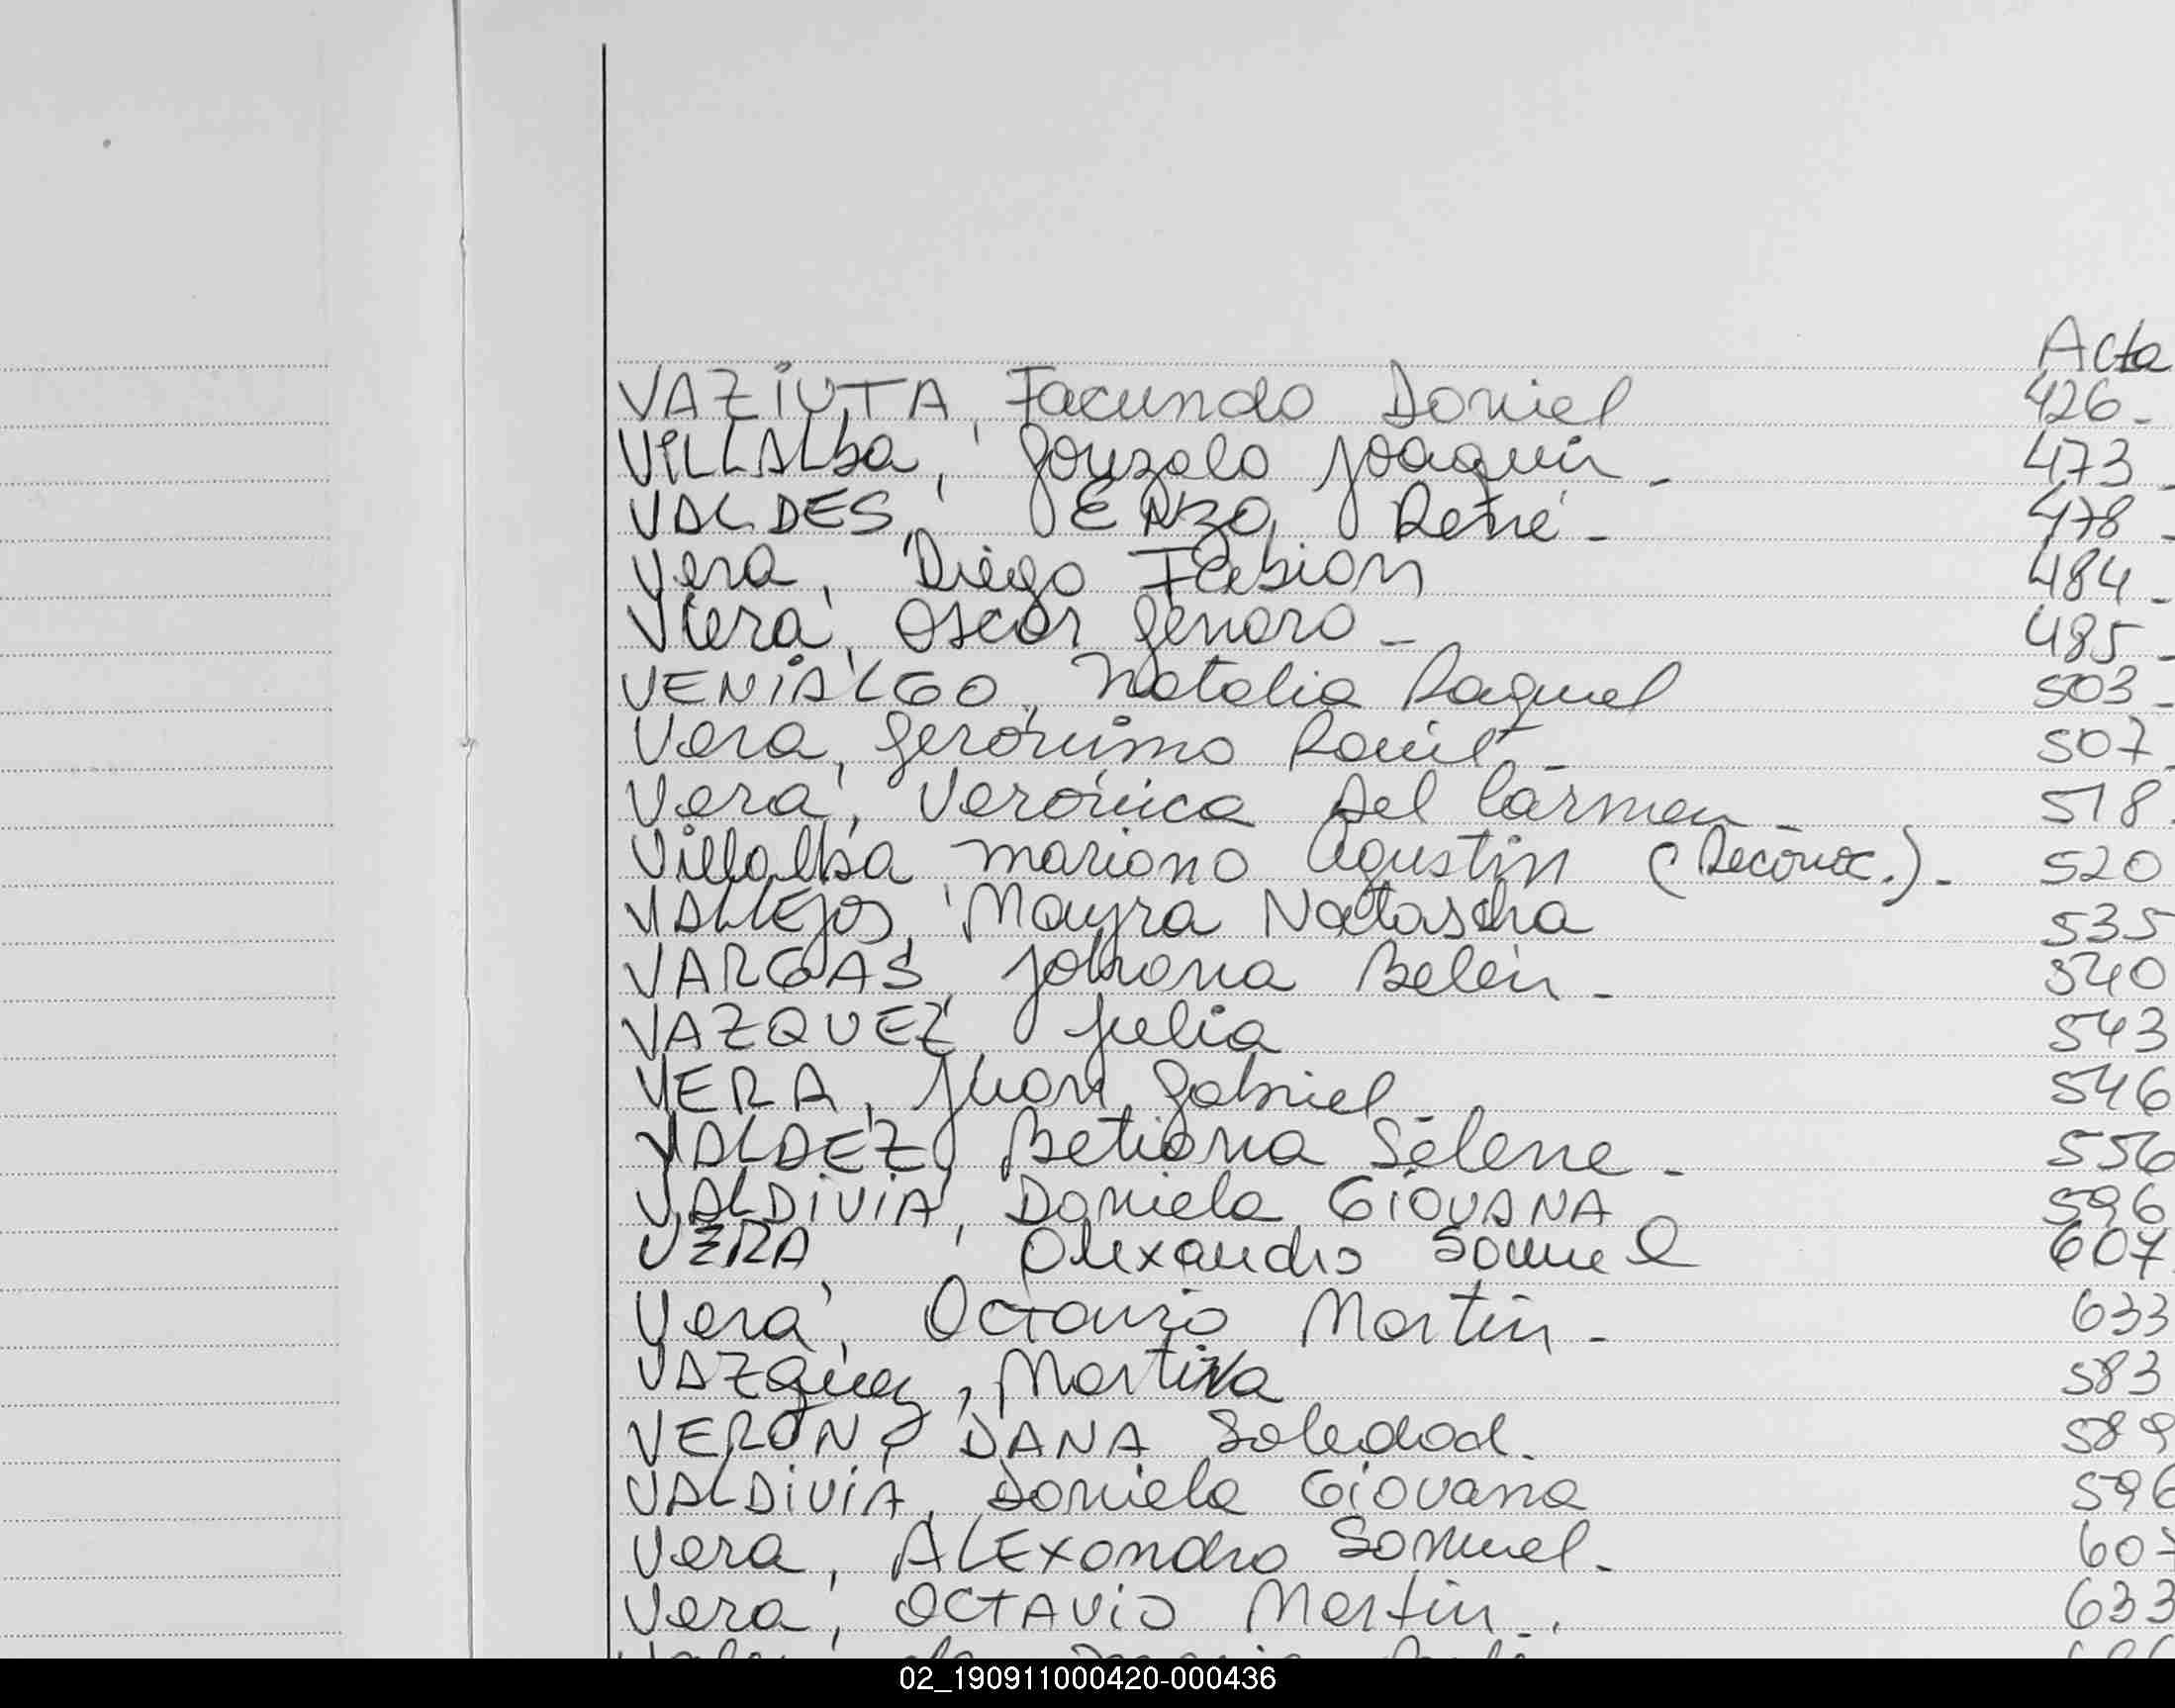 Acta
VAZIUTA, Facundo Daniel 426-
VILLALba, Gonzalo Joaquin - 473-
VALDES, ENZO René - 478-
Vera, Diego Fabian 484-
Viera, Oscar Genaro - 485-
VENIALGO, Natalia Raquel 503-
Vera, Gerónimo 507-
Vera, Verónica Del Carmen - 518
Villalba Mariano Agustin (Reconoc.)- 520
VALLEJOS, Mayra Natascha 535
VARGAS, Johana Belén - 540
VAZQUEZ, Julia 543
VERA, Juan Gabriel - 546
VALDEZ, Betiana Selene - 556
VALDIVIA, Daniela GIOVANA 596
VERA, Alexandro Samuel 607
Vera, Octavio Martin - 633
VAZquez, Martina 583
VERON, DANA Soledad. 589
VALDIVIA, Daniela Giovana 596
Vera, ALExandro Samuel - 607
Vera, OCTAVIO Martin - 633
02_190911000420-000436